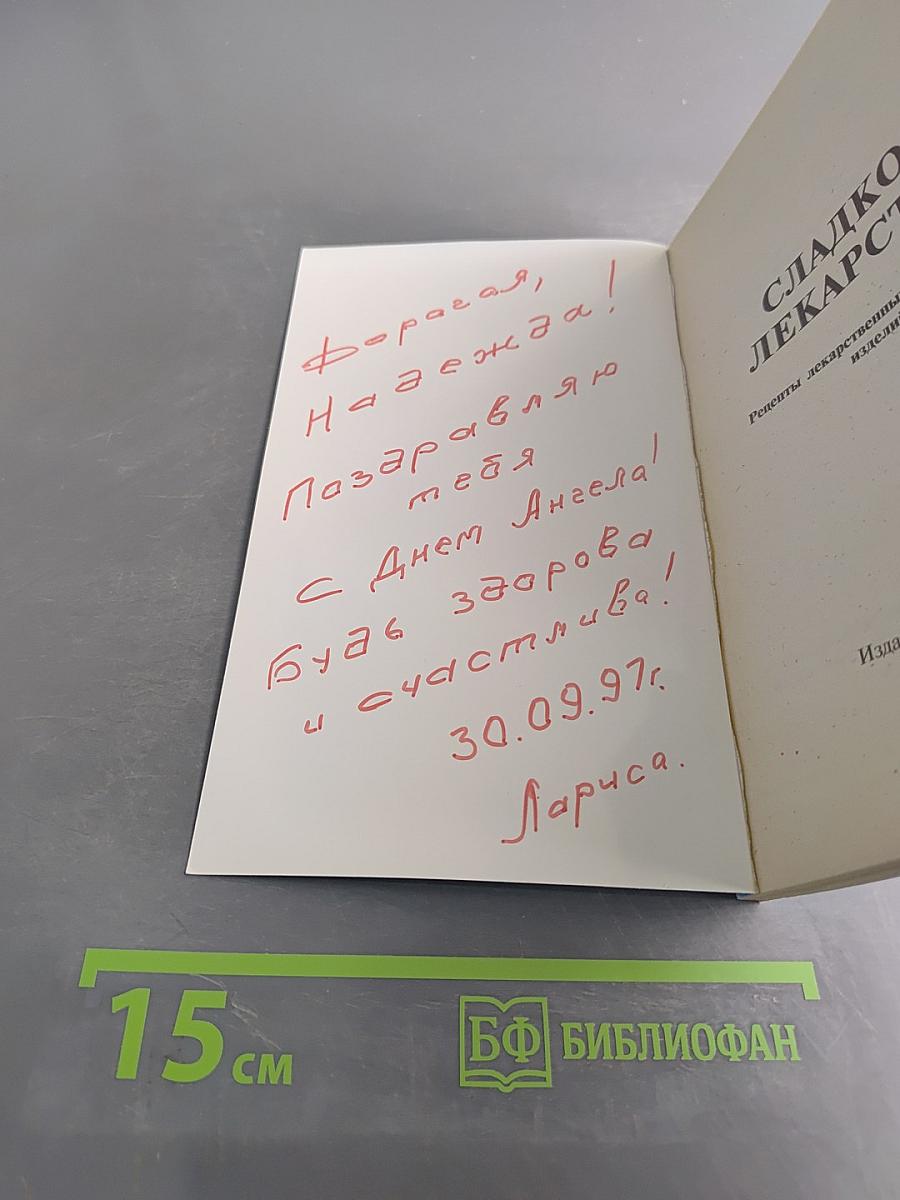 Дорогая,
Надежда!
Поздравляю
тебя
с Днем Ангела!
Будь здорова
и счастлива!
30.09.97г.
Лариса.
СЛАДКО
ЛЕКАРСТ
Рецепты лекарственны
изделий
Изда
15 см
БФ БИБЛИОФАН